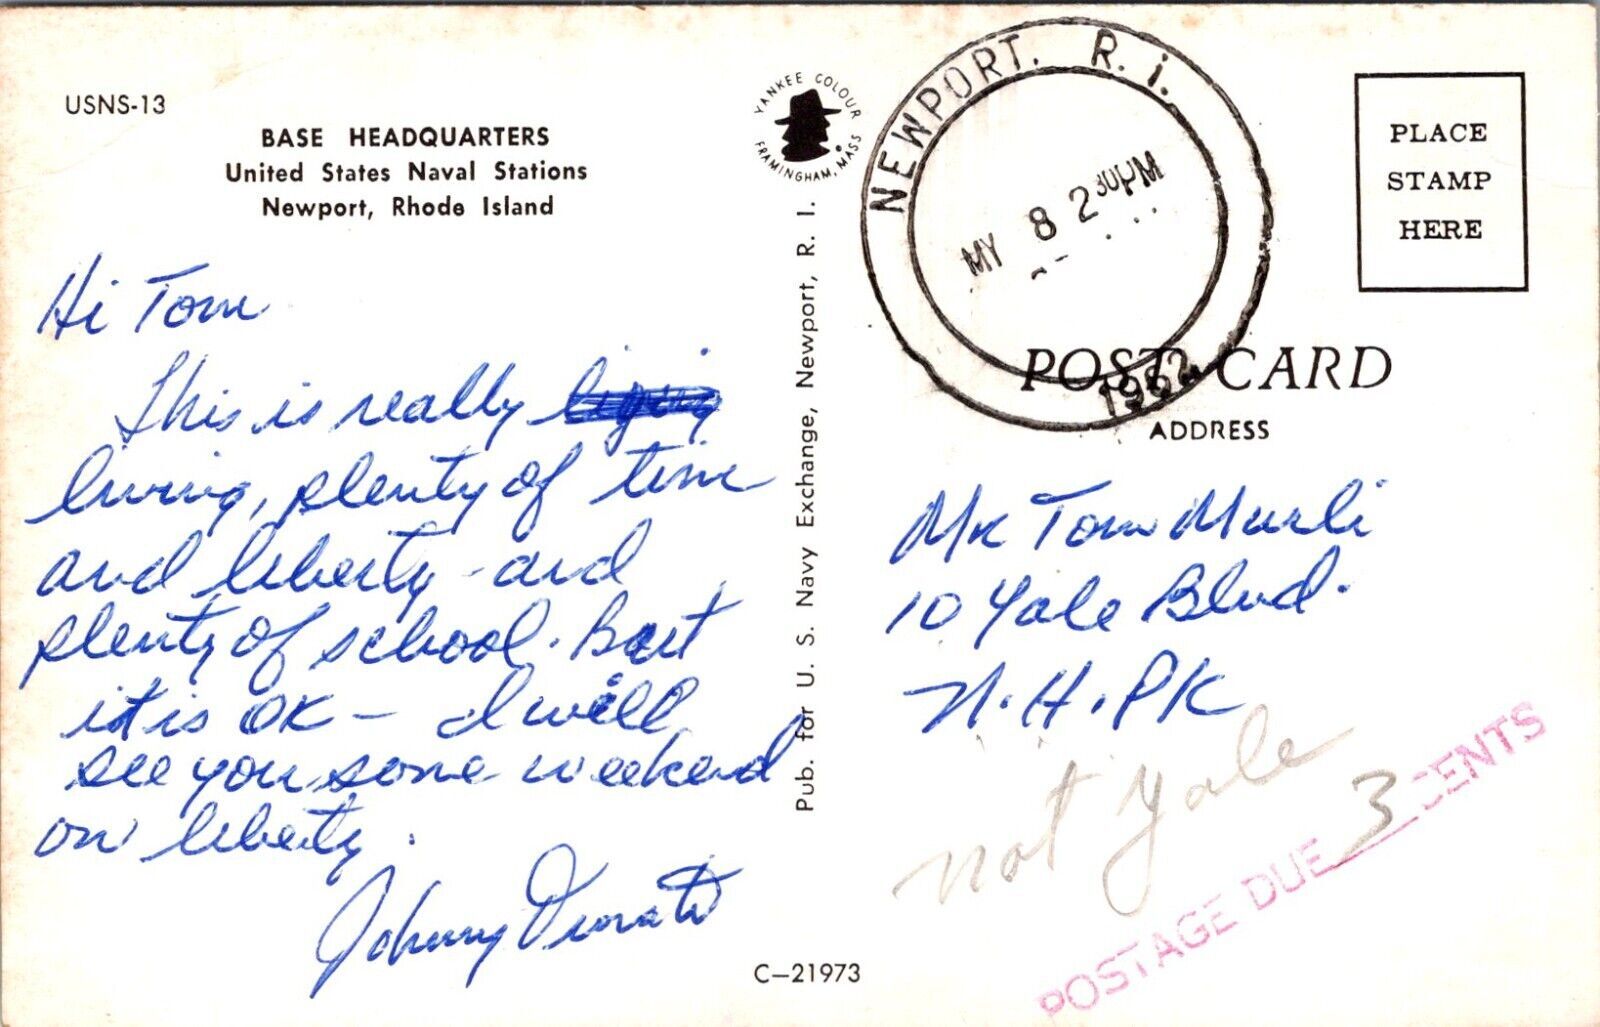 USNS-13
BASE HEADQUARTERS
United States Naval Stations
Newport, Rhode Island
Hi Tom
This is really
living, plenty of time
and liberty - and
plenty of school. But
it is OK - I will
see you some weekend
on liberty.
Johnny
YANKEE COLOUR
FRAMINGHAM, MASS
Pub. for U. S. Navy Exchange, Newport, R. I.
C-21973
NEWPORT. R. I.
MY 8 2 30PM
1962
PLACE
STAMP
HERE
POST CARD
ADDRESS
Mr Tom Murli
10 Yale Blvd.
N.H.PK
not Yale
POSTAGE DUE 3 CENTS